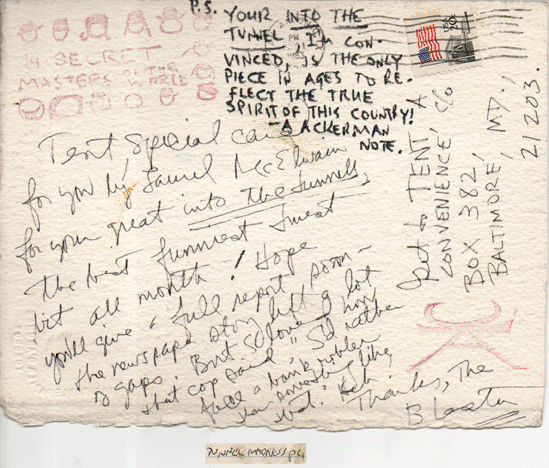 P.S.
YOUR INTO THE
TUNNEL, I'M CON-
VINCED, IS THE ONLY
PIECE IN AGES TO RE-
FLECT THE TRUE
SPIRIT OF THIS COUNTRY!
- A ACKERMAN
NOTE.
14 SECRET
MASTERS OF THE
WORLD
USA 20c
Tent, special card
for you by Laurel McElwain
for your great into the tunnels,
the best funniest
bit all month! Hope
you'll give a full report soon -
the newspaper story left a lot
of gaps. But I loved how
that cop said, "I'd rather
face a bank robber
than something like
that." Heh
Thanks, The
Blaster
to TENT A
CONVENIENCE, c/o
BOX 382,
BALTIMORE, MD.
21203.
TUNNEL MADNESS